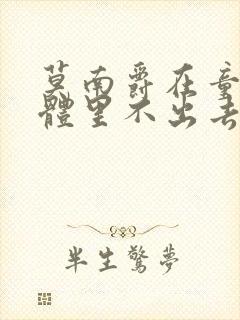 莫南爵在童
體里不出去
半生驚夢